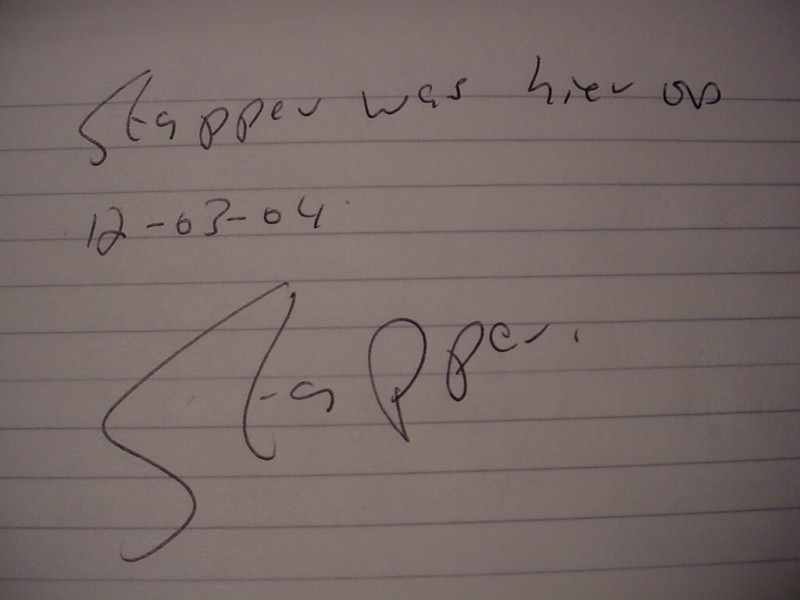 Stapper was hier op
12-03-04
Stapper.